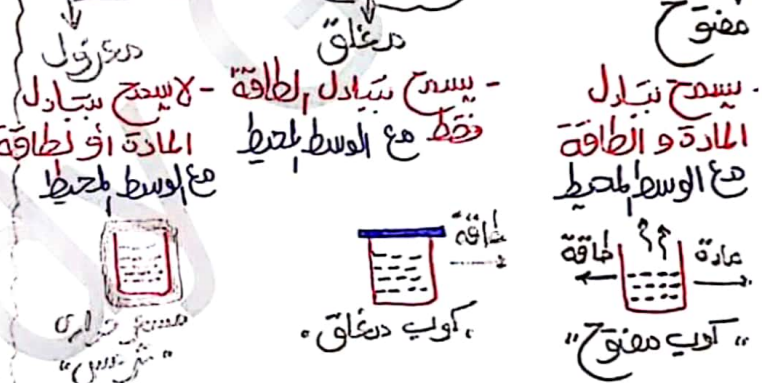 مفتوح
- يسمح بتبادل
المادة و الطاقة
مع الوسط المحيط
مادة
طاقة
"كوب مفتوح"
مغلق
- يسمح بتبادل الطاقة
فقط مع الوسط المحيط
طاقة
"كوب مغلق"
معزول
- لا يسمح بتبادل
المادة أو لطاقة
مع الوسط المحيط
"ثرمس"